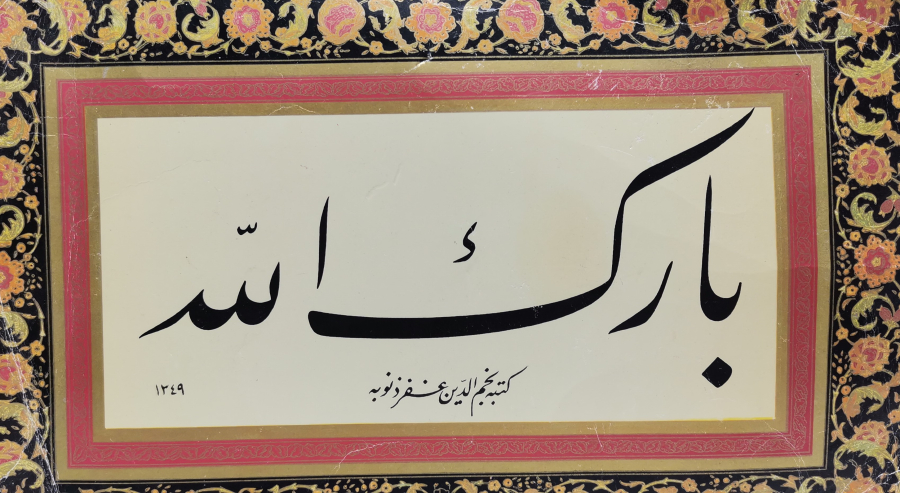 بارك الله
كتبه نجم الدّین غفر ذنوبه
١٣٤٩